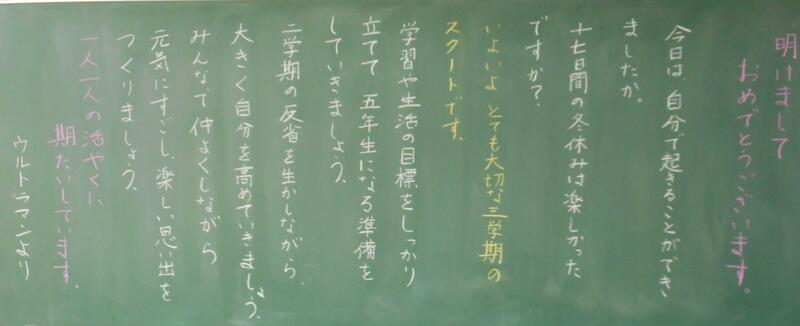 明けまして
おめでとうございます。
今日は、自分で起きることができ
ましたか。
十七日間の冬休みは楽しかった
ですか?
いよいよ とても大切な三学期の
スタートです。
学習や生活の目標をしっかり
立てて、五年生になる準備を
していきましょう。
二学期の反省を生かしながら、
大きく自分を高めていきましょう。
みんなで仲よくしながら
元気にすごし、楽しい思い出を
つくりましょう。
一人一人の活やくに
期たいしています。
ウルトラマンより